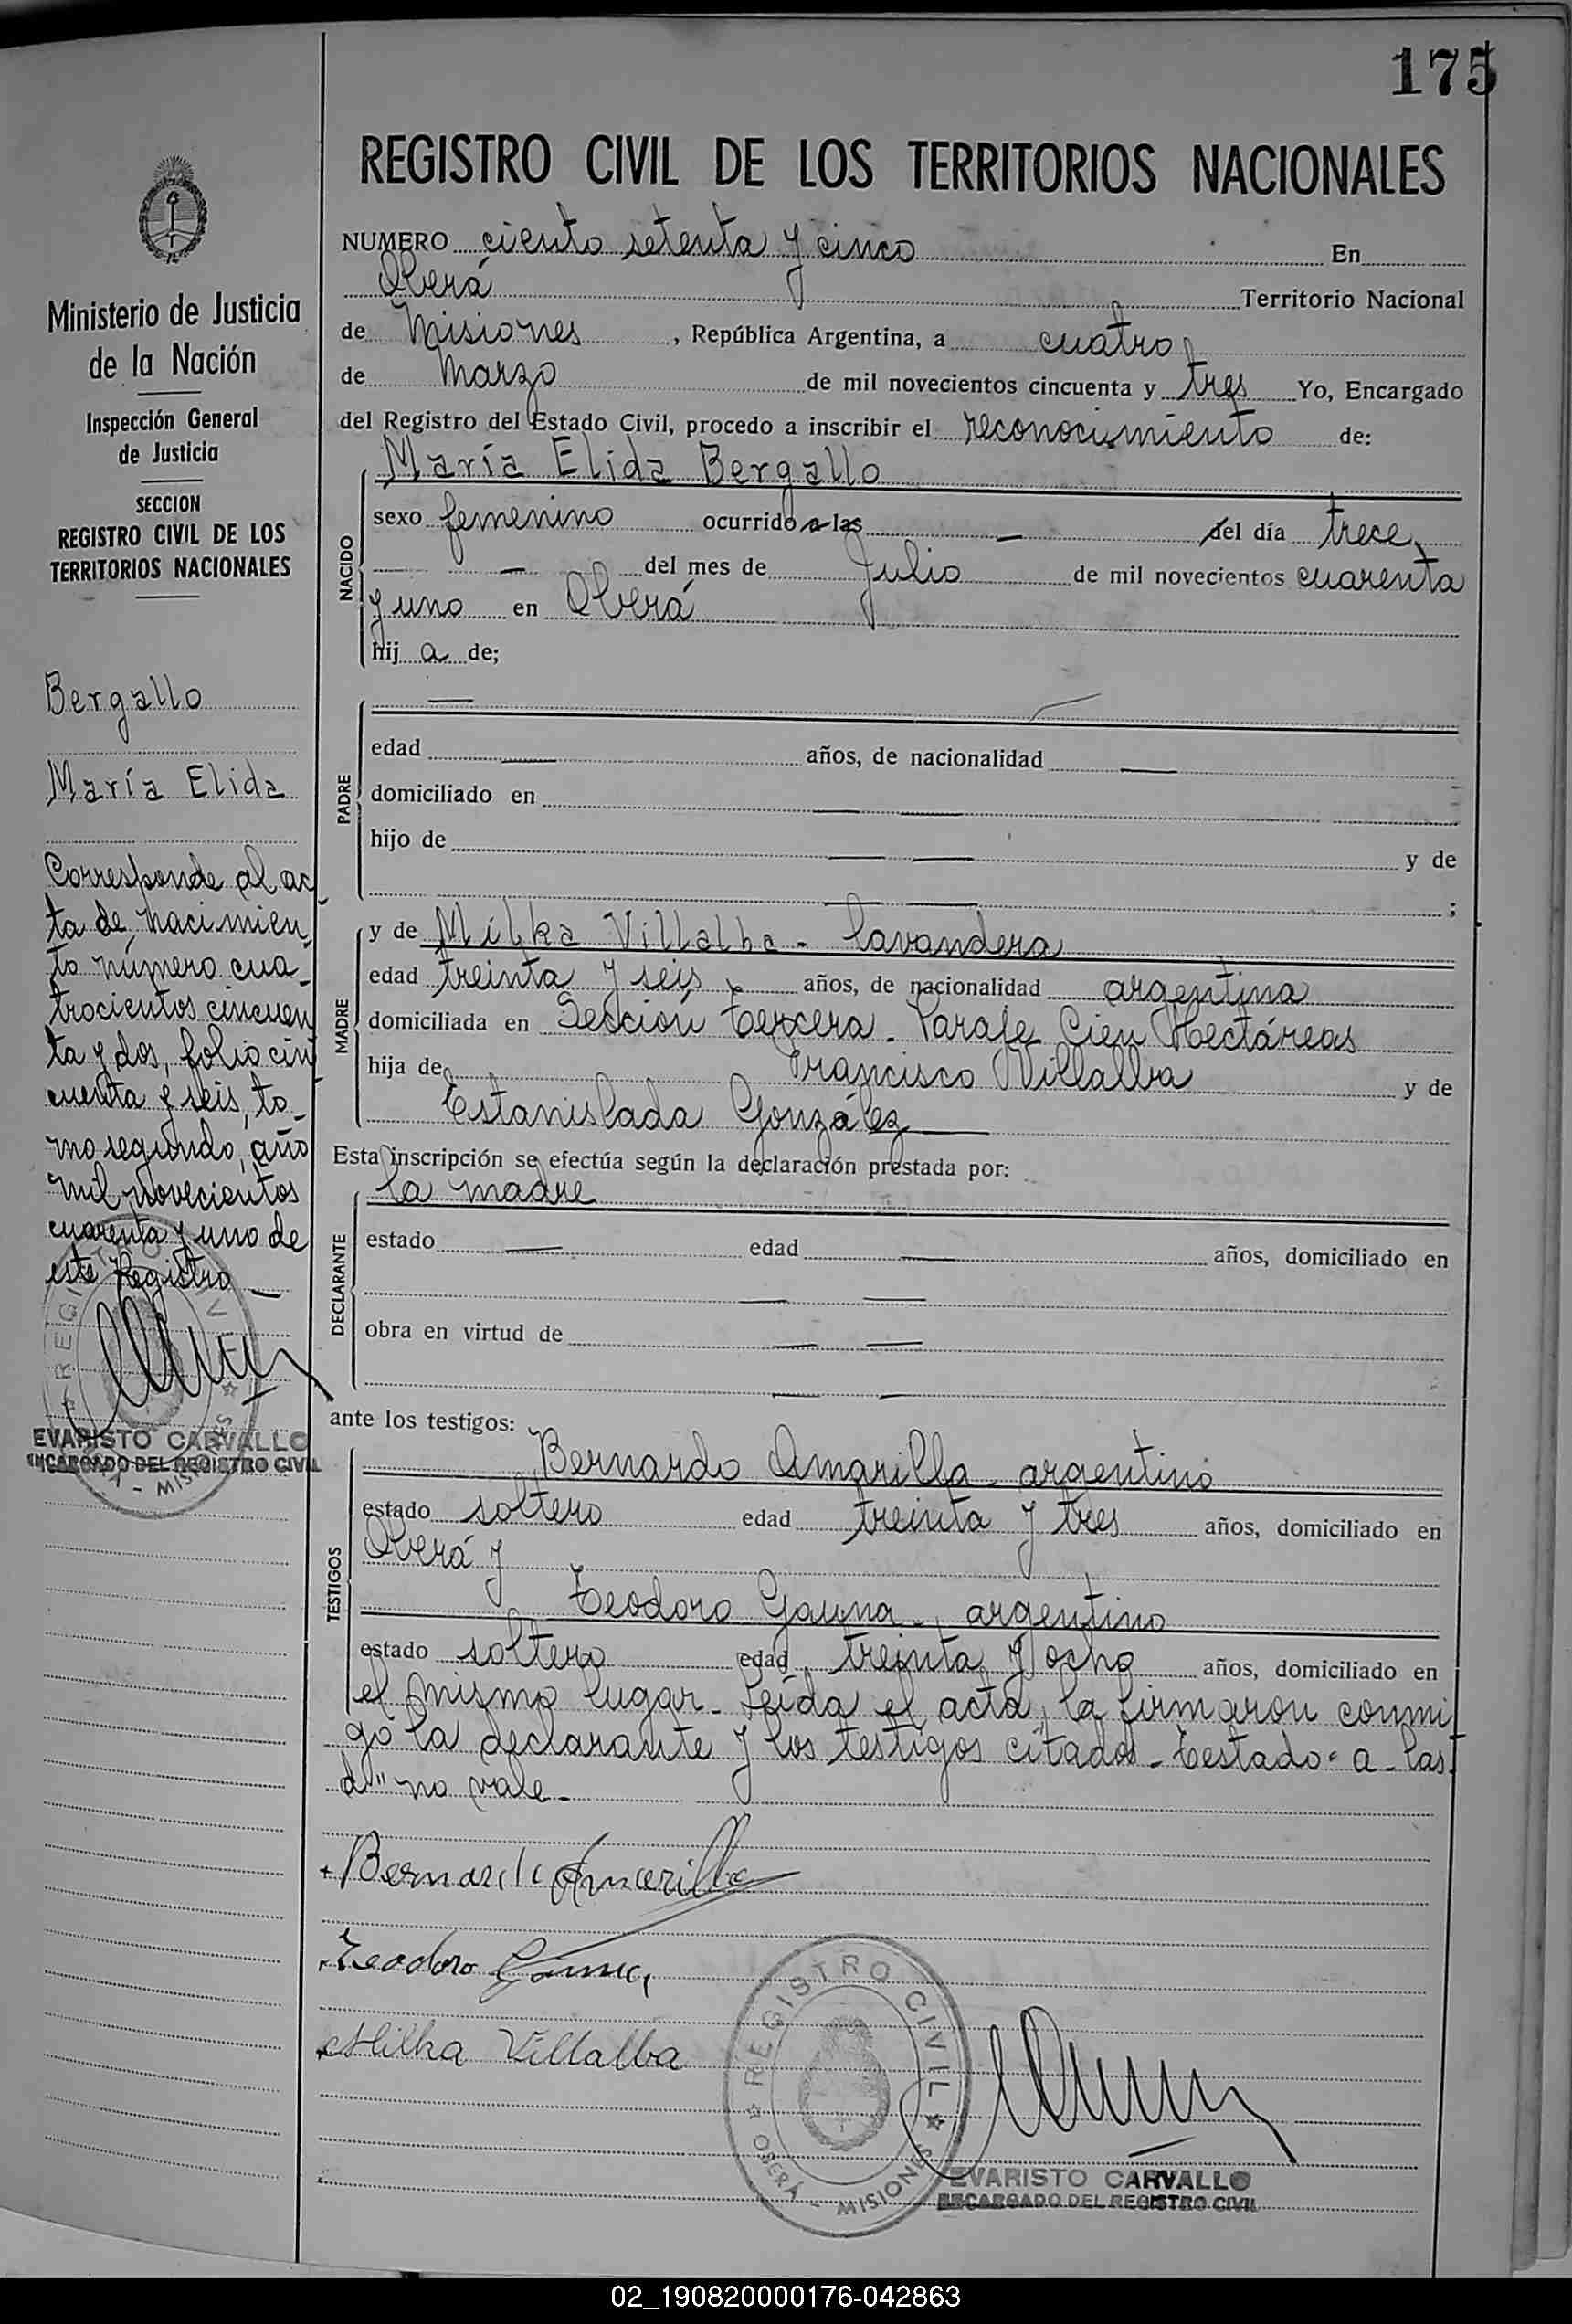 175
REGISTRO CIVIL DE LOS TERRITORIOS NACIONALES
Ministerio de Justicia
de la Nación
Inspección General
de Justicia
SECCION
REGISTRO CIVIL DE LOS
TERRITORIOS NACIONALES
Bergallo
María Elida
Corresponde al ac-
ta de nacimien-
to número cua-
trocientos cincuen
ta y dos, folio cin
cuenta y seis, to-
mo segundo, año
mil novecientos
cuarenta y uno de
este Registro
EVARISTO CARVALLO
ENCARGADO DEL REGISTRO CIVIL
NUMERO ciento setenta y cinco En
Oberá Territorio Nacional
de Misiones, República Argentina, a cuatro
de Marzo de mil novecientos cincuenta y tres Yo, Encargado
del Registro del Estado Civil, procedo a inscribir el reconocimiento de:
María Elida Bergallo
NACIDO
sexo femenino ocurrido a las — del día trece
— del mes de Julio de mil novecientos cuarenta
y uno en Oberá
hij a de;
PADRE
edad — años, de nacionalidad —
domiciliado en — —
hijo de — — y de
— — ;
MADRE
y de Milka Villalba - lavandera
edad treinta y seis años, de nacionalidad argentina
domiciliada en Sección tercera - Paraje Cien Hectáreas
hija de Francisco Villalba y de
Estanislada González —
Esta inscripción se efectúa según la declaración prestada por:
la madre
DECLARANTE
estado — edad — años, domiciliado en
— —
obra en virtud de — —
— —
ante los testigos:
TESTIGOS
Bernardo Amarilla - argentino
estado soltero edad treinta y tres años, domiciliado en
Oberá y
Teodoro Gauna - argentino
estado soltero edad treinta y ocho años, domiciliado en
el mismo lugar - Leída el acta, la firmaron conmi-
go la declarante y los testigos citados - Testado "a - las
d" no vale -
Bernardo Amarilla
Teodoro Gauna
Milka Villalba
REGISTRO CIVIL
OBERÁ - MISIONES
EVARISTO CARVALLO
ENCARGADO DEL REGISTRO CIVIL
02_190820000176-042863